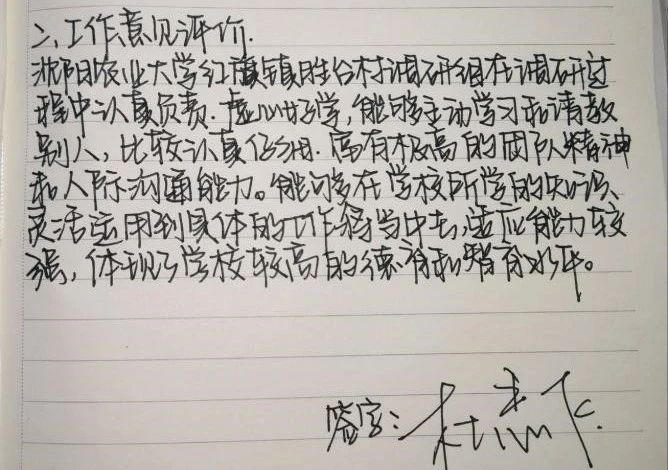 二、工作意见评价.
沈阳农业大学红旗镇胜台村调研组在调研过
程中认真负责.虚心好学,能够主动学习和请教
别人,比较认真仔细.富有极高的团队精神
和人际沟通能力。能够在学校所学的知识、
灵活运用到具体的工作中去,适应能力较
强,体现了学校较高的德育和智育水平。
签字:杜志